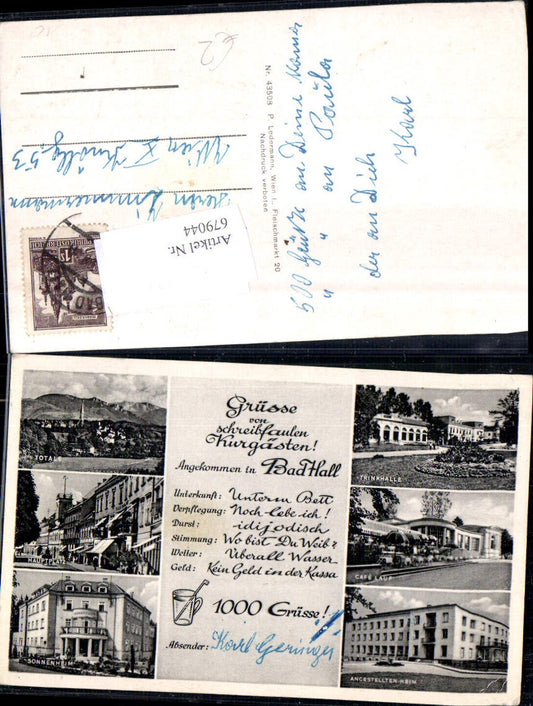 500 Grüße an Deine Mama
" " an Paula
der an Dich
Karl
Nr. 43508 P. Ledermann, Wien I., Fleischmarkt 20
Nachdruck verboten
Zimmermann
Wien X
53
Artikel Nr.
679044
Grüsse
von
schreibfaulen
Kurgästen!
Angekommen in Bad Hall
Unterkunft: Unterm Bett
Verpflegung: Hoch lebe ich!
Durst: idijodisch
Stimmung: Wo bist Du Weib?
Wetter: Überall Wasser
Geld: Kein Geld in der Kassa
1000 Grüsse!
Absender: Karl Geringer
TOTALE
HAUPTPLATZ
SONNENHEIM
TRINKHALLE
CAFÉ LAUF
ANGESTELLTEN-HEIM